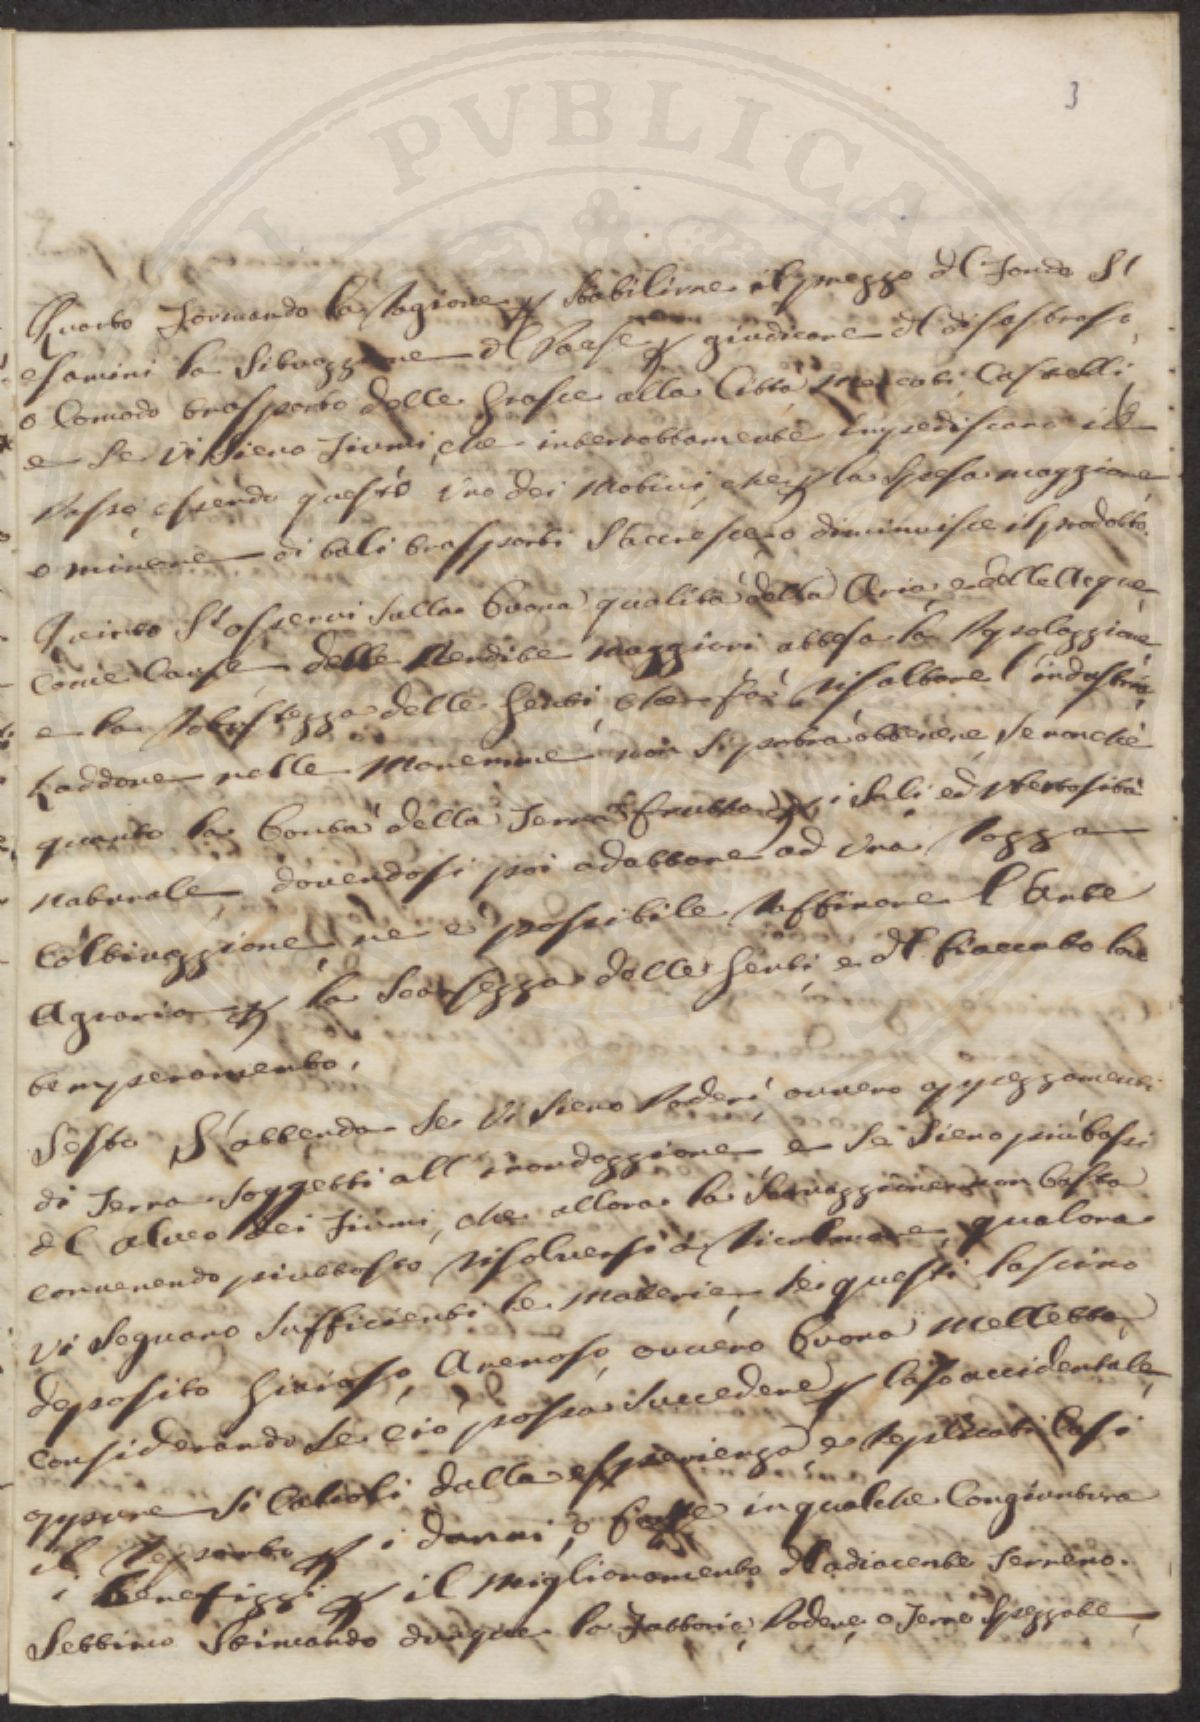 3
Quarto Formando la Ragione p stabilirne il prezzo dl Fondo S'
esamini la Situazzione dl Paese p giudicare dl disastroso,
o Comodo trasporto delle Grasce alla Città Mercati Castelli,
e Se Vi Sieno Fiumi, che interrottamente impediscano il
Passo, essendo questo Uno dei Motivi, che p la Spesa maggiore
o minore di tali trasporti S'accresce, o diminuisce il prodotto.
Quinto S'osservi Sulla buona qualità della Aria e delle Acque
Come Cause delle Rendite maggiori attesa la Popolazzione
e la Robustezza delle Genti, che fà risaltare l'industria,
laddove nelle Maremme non Si potrà ottenere, Se non che
quanto la bontà della Terra frutta p i Sali ed Ubertosità
naturale, dovendosi poi adattare ad Una Rozza
Coltivazzione, ne è possibile raffinare l'Arte
Agraria p la Scarsezza delle Genti, e dl fiaccato lor
temperamento.
Sesto S'attenda Se Vi Sieno Poderi, ovvero appezzamenti
di Terra Soggetti all'inondazzione e Se Sieno più bassi
dl alveo dei Fiumi, che allora la non basta
convenendo piuttosto risolversi à qualora
Vi Seguano Sufficienti le Materie, Se questi lascino
deposito Giaioso, Arenoso, ovvero buona Melletta,
considerando Se ciò possa Succedere p Caso accidentale,
oppure Si Calcoli dalla esperienza, e replicati Casi
il p i danni, o forse in qualche Congiuntura
i benefizzi p il Miglioramento dl adiacente Terreno.
Settimo Stimando dunque la Fattoria, Podere, o Terre Spezzate,
PVBLICA